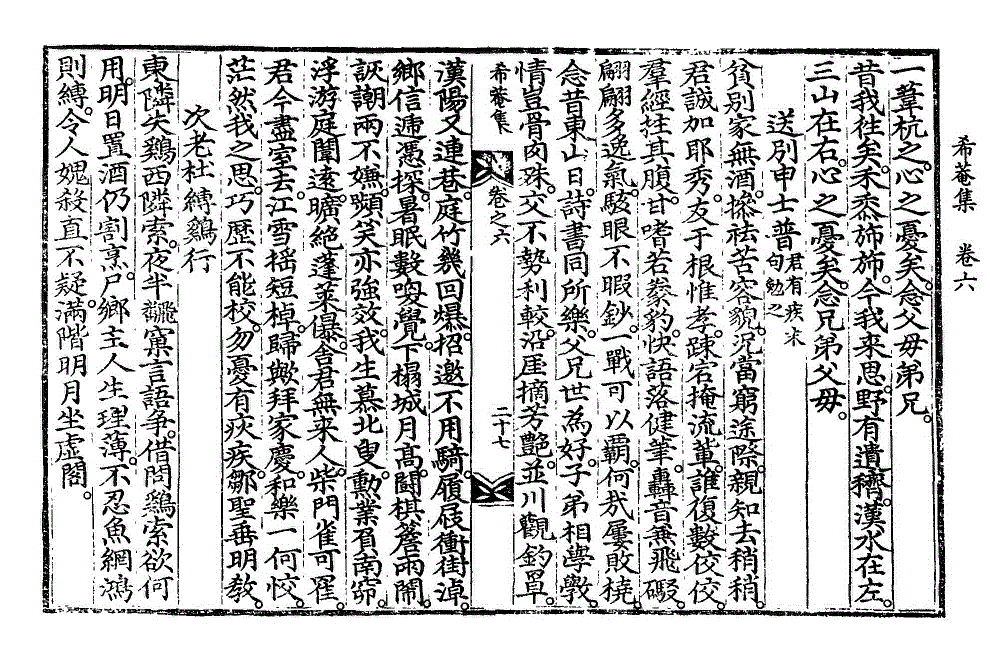 希菴集　卷六
一葦杭之。心之憂矣。念父母弟兄。
昔我往矣。禾黍斾斾。今我来思。野有遺穧。漢水在左。
三山在右。心之憂矣。念兄弟父母。
送別申士普君有疾求句勉之
貧別家無酒。摻袪苦容貌。況當窮途際。親知去稍稍。
君誠加耶秀。友于根惟孝。踈宕掩流輩。誰復數佼佼。
羣經拄其腹。甘嗜若豢豹。快語落健筆。轟音無飛礮。
翩翩多逸氣。駭眼不暇鈔。一戰可以霸。何㢤屢敗橈。
念昔東山日。詩書同所樂。父兄世為好。子弟相學斆。
情豈骨肉殊。交不勢利較。沿厓摘芳艶。並川觀釣罩。
希菴集　卷之六　二十七
漢陽又連巷。庭竹幾回爆。招邀不用騎。履屐衝街淖。
鄉信遞憑探。暑眠數喚覺。下榻城月高。鬪棋簷雨鬧。
詼謿兩不嫌。嚬笑亦強效。我生慕北叟。勳業負南窌。
浮游庭闈遠。曠絶蓬萊瀑。舍君無来人。柴門雀可罩。
君今盡室去。江雪搖短棹。歸歟拜家慶。和樂一何恔。
茫然我之思。巧歴不能校。勿憂有疢疾。鄒聖垂明敎。
次老杜縛鷄行
東隣失鷄西隣索。夜半飜窠言語爭。借問鷄索欲何
用。明日置酒仍割烹。尸鄉主人生理薄。不忍魚網鴻
則縛。令人媿殺直不疑。滿階明月坐虛閣。